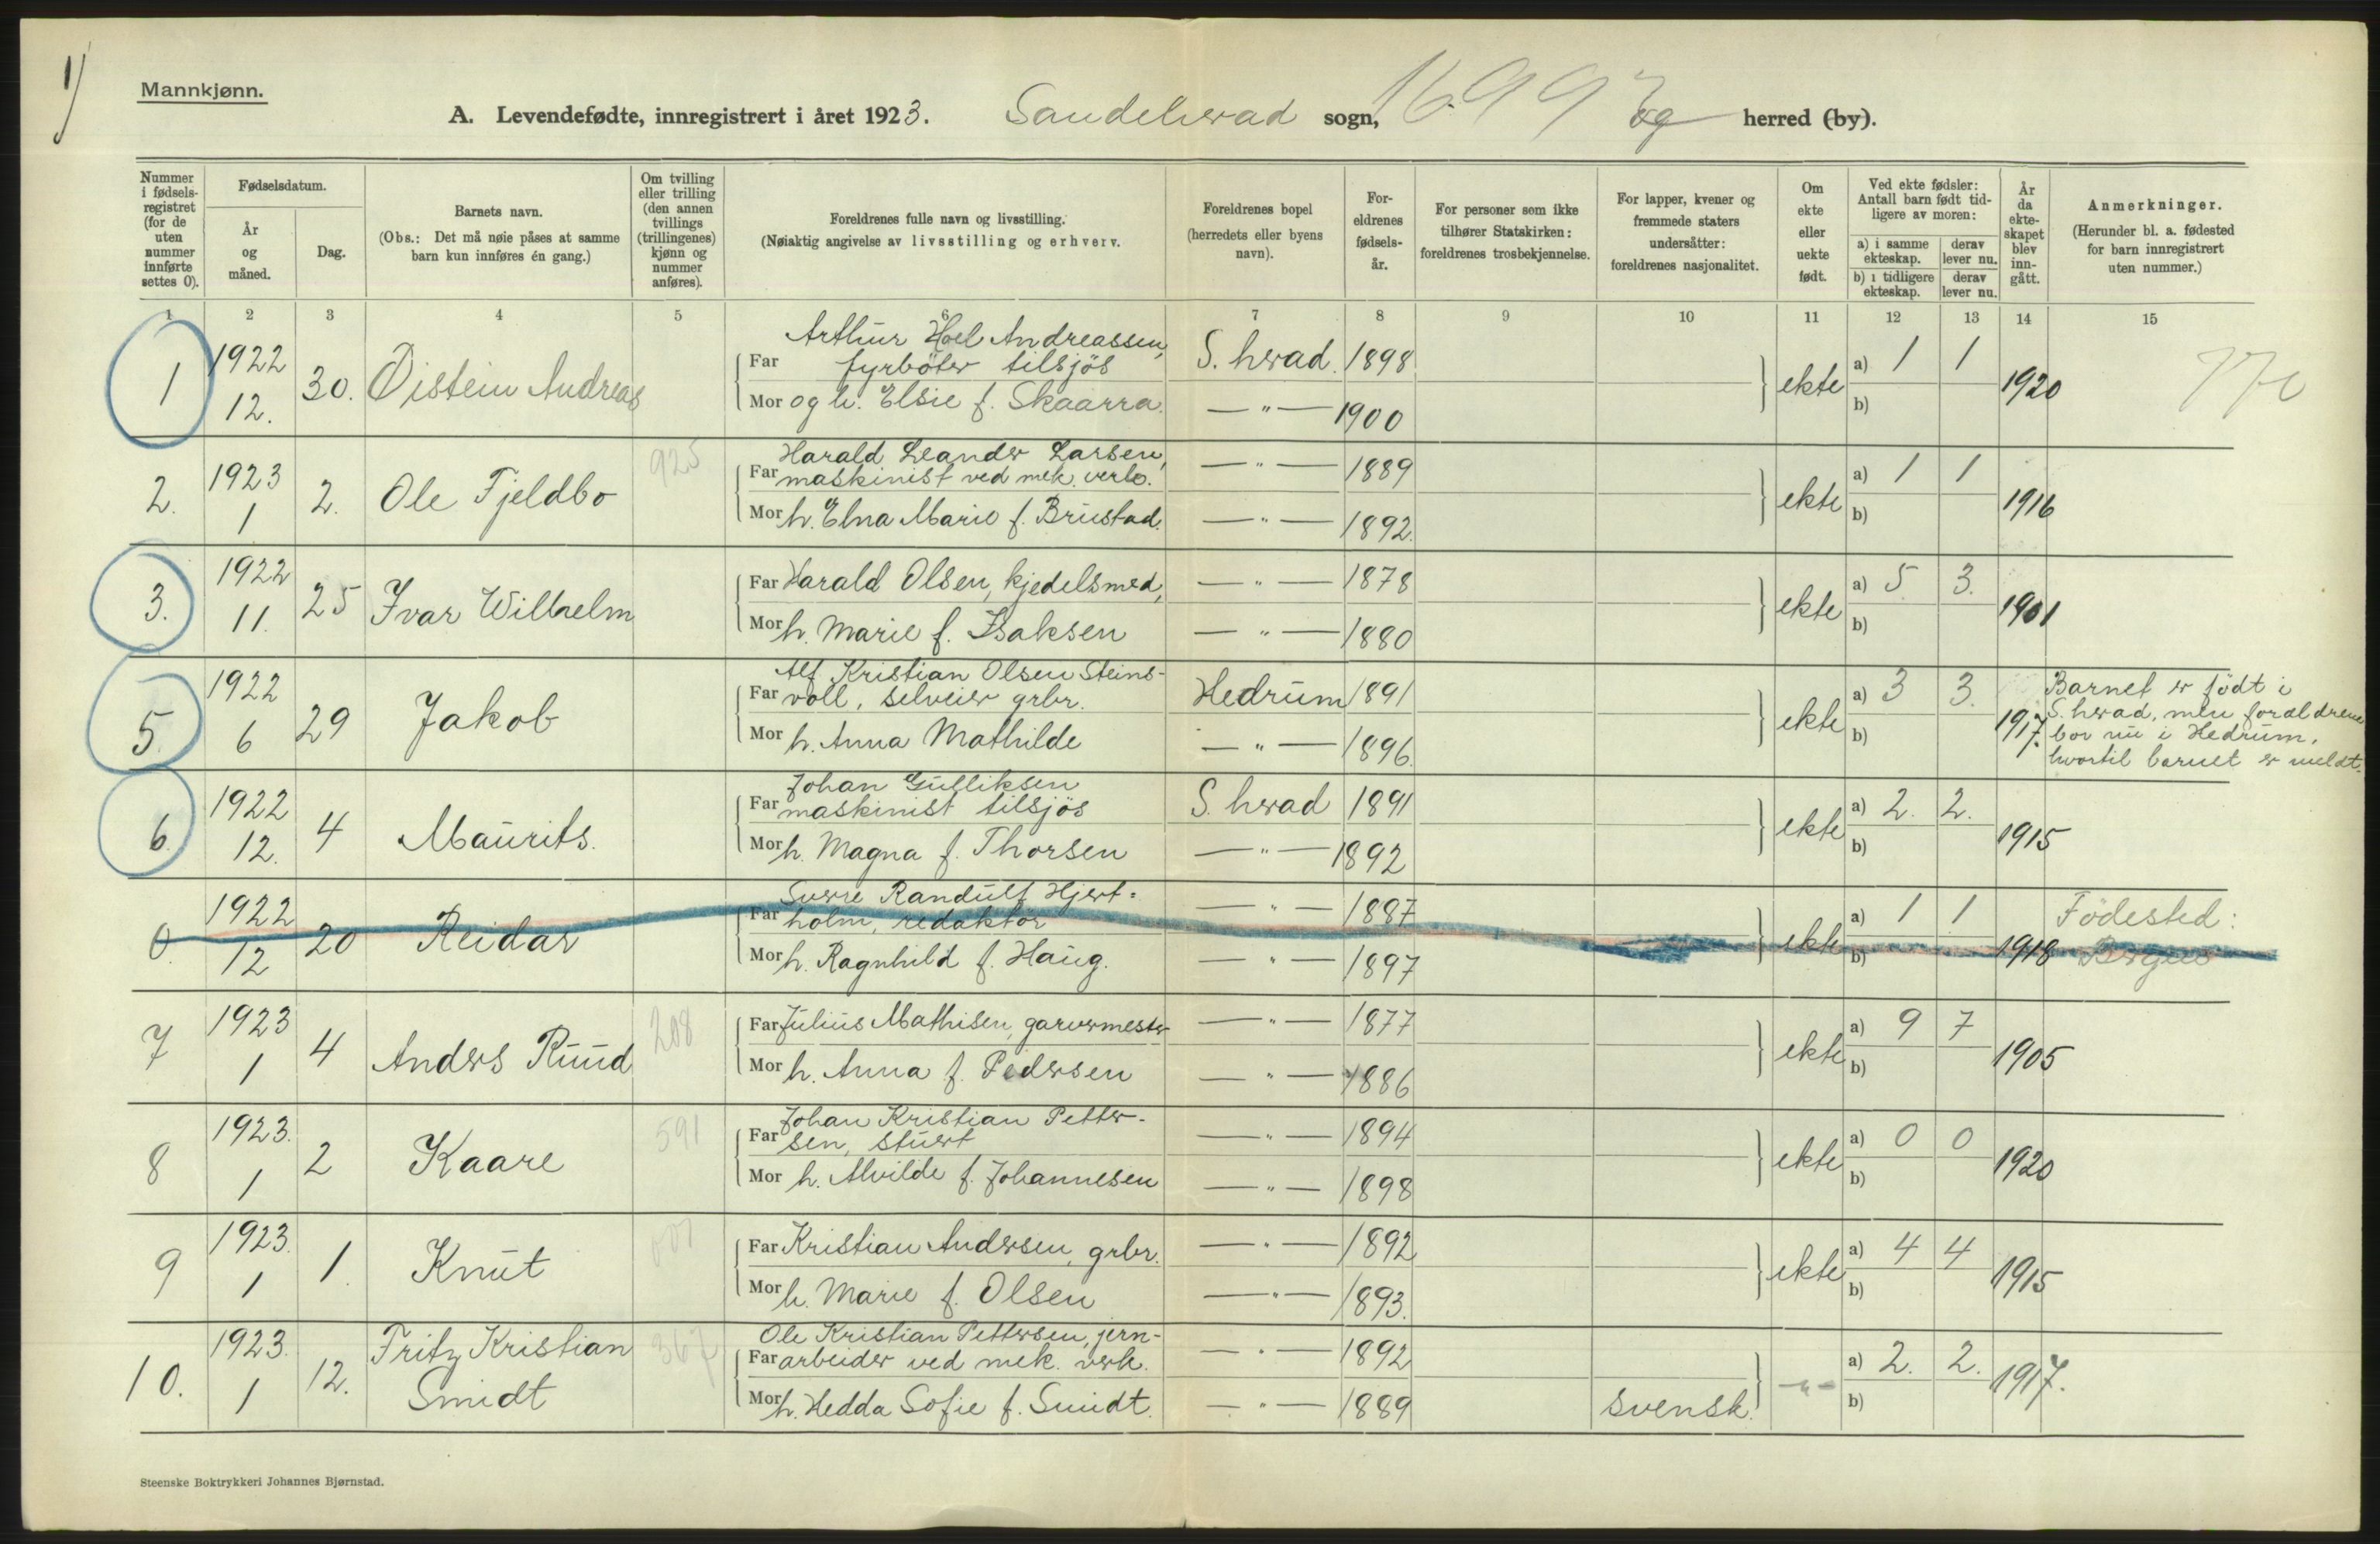 1)
Mannkjønn.
A. Levendefødte, innregistrert i året 1923. Sandeherad sogn, og herred (by).
Nummer i fødselsregistret (for de uten nummer innførte settes 0).
Fødselsdatum.
År og måned.
Dag.
Barnets navn.
(Obs.: Det må nøie påses at samme barn kun innføres én gang.)
Om tvilling eller trilling (den annen tvillings (trillingenes) kjønn og nummer anføres).
Foreldrenes fulle navn og livsstilling.
(Nøiaktig angivelse av livsstilling og erhverv.
Foreldrenes bopel (herredets eller byens navn).
Foreldrenes fødselsår.
For personer som ikke tilhører Statskirken: foreldrenes trosbekjennelse.
For lapper, kvener og fremmede staters undersåtter: foreldrenes nasjonalitet.
Om ekte eller uekte født.
Ved ekte fødsler: Antall barn født tidligere av moren:
a) i samme ekteskap. derav lever nu.
b) i tidligere ekteskap. derav lever nu.
År da ekteskapet blev inngått.
Anmerkninger.
(Herunder bl. a. fødested for barn innregistrert uten nummer.)
1 2 3 4 5 6 7 8 9 10 11 12 13 14 15
1 1922 12. 30. Øistein Andreas
Arthur Hoel Andreassen,
Far fyrböter tilsjös S. herad. 1898
Mor og h. Elsie f. Skaarra. — " — 1900
ekte a) 1 1 b) 1920
2. 1923 1 2. Ole Fjeldbo 925
Harald Leander Larsen,
Far maskinist ved mek. verks. — " — 1889
Mor h. Elna Marie f. Brustad. — " — 1892.
ekte a) 1 1 b) 1916
3. 1922 11. 25 Ivar Wilhelm
Far Harald Olsen, kjedelsmed, — " — 1878
Mor h. Marie f. Isaksen — " — 1880
ekte a) 5 3. b) 1901
5. 1922 6 29 Jakob
Alf Kristian Olsen Steins-
Far voll, selveier grbr. Hedrum 1891
Mor h. Anna Mathilde — " — 1896.
ekte a) 3 3. b) 1917.
Barnet er født i
S. herad, men foreldrene
bor nu i Hedrum,
hvortil barnet er meldt.
6. 1922 12. 4 Maurits.
Johan Gulliksen
Far maskinist tilsjös S. herad 1891
Mor h. Magna f. Thorsen — " — 1892
ekte a) 2. 2. b) 1915
0. 1922 12 20 Reidar
Sverre Randulf Hjert=
Far holm, redaktör — " — 1887
Mor h. Ragnhild f. Haug. — " — 1897
ekte a) 1 1 b) 1918
Födested:
Bergen
7 1923 1 4 Anders Ruud 208
Far Julius Mathisen, garvermester — " — 1877
Mor h. Anna f. Pedersen — " — 1886
ekte a) 9 7 b) 1905
8 1923. 1 2 Kaare 591
Johan Kristian Petter-
Far sen, stuert — " — 1894
Mor h. Alvilde f. Johannesen — " — 1898
ekte a) 0 0 b) 1920
9 1923. 1 1. Knut
Far Kristian Andersen, grbr. — " — 1892
Mor h. Marie f. Olsen — " — 1893.
ekte a) 4 4 b) 1915
10. 1923. 1 12. Fritz Kristian Smidt 367
Ole Kristian Pettersen, jern-
Far arbeider ved mek. verk. — " — 1892
Mor h. Hedda Sofie f. Smidt. — " — 1889 svensk.
— " — a) 2. 2. b) 1917.
Steenske Boktrykkeri Johannes Bjørnstad.